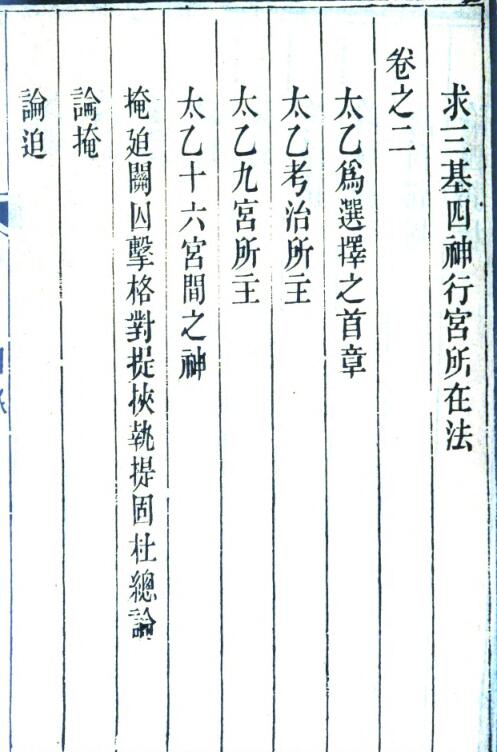 求三基四神行宮所在法
卷之二
太乙爲選擇之首章
太乙考治所主
太乙九宮所主
太乙十六宮間之神
掩廹關囚擊格對提挾執提固杜總論
論掩
論迫